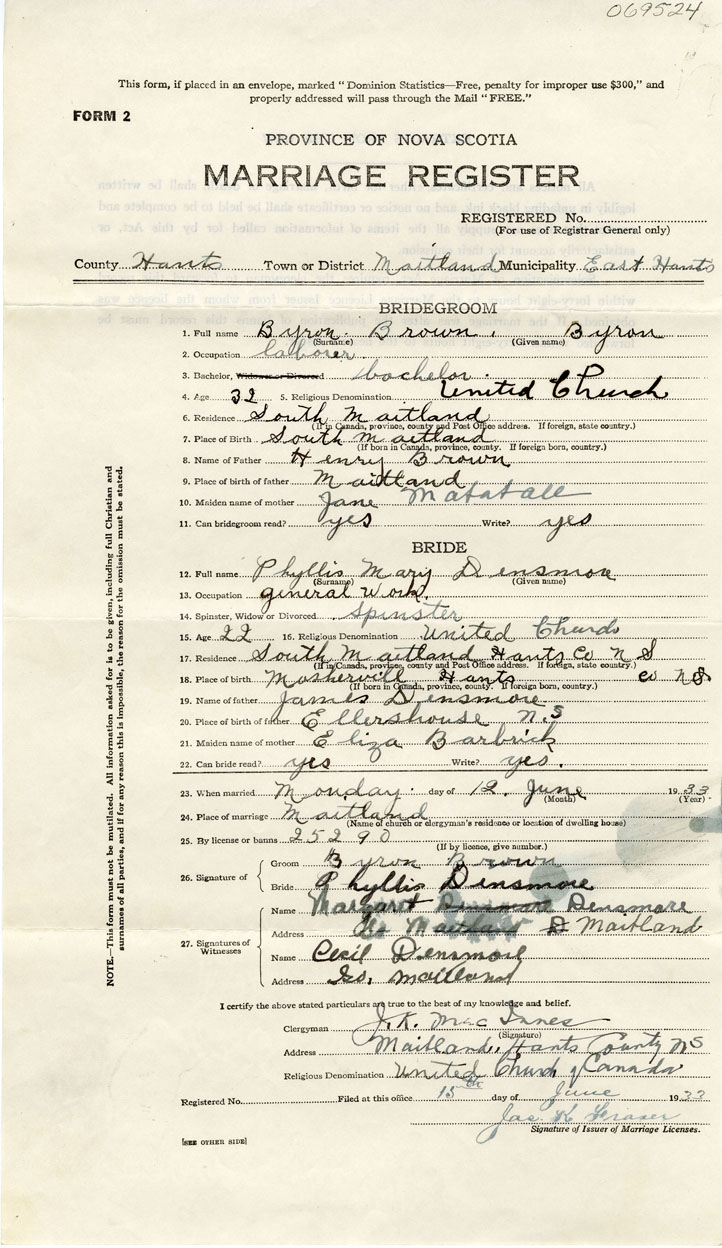 069524
This form, if placed in an envelope, marked "Dominion Statistics—Free, penalty for improper use $300," and
properly addressed will pass through the Mail "FREE."
FORM 2
PROVINCE OF NOVA SCOTIA
MARRIAGE REGISTER
REGISTERED No.
(For use of Registrar General only)
County Hants Town or District Maitland Municipality East Hants
BRIDEGROOM
1. Full name Byron Brown, Byron
(Surname) (Given name)
2. Occupation laborer
3. Bachelor, Widower or Divorced bachelor
4. Age 32 5. Religious Denomination United Church
6. Residence South Maitland
(If in Canada, province, county and Post Office address. If foreign, state country.)
7. Place of Birth South Maitland
(If born in Canada, province, county. If foreign born, country.)
8. Name of Father Henry Brown
9. Place of birth of father Maitland
10. Maiden name of mother Jane Matatall
11. Can bridegroom read? yes Write? yes
BRIDE
12. Full name Phyllis Mary Densmore
(Surname) (Given name)
13. Occupation general work.
14. Spinster, Widow or Divorced Spinster
15. Age 22 16. Religious Denomination United Church
17. Residence South Maitland Hants Co N S
(If in Canada, province, county and Post Office address. If foreign, state country.)
18. Place of birth Moshervill Hants Co N S
(If born in Canada, province, county. If foreign born, country.)
19. Name of father James Densmore
20. Place of birth of father Ellershouse N.S
21. Maiden name of mother Eliza Barbrick
22. Can bride read? yes Write? yes.
23. When married Monday day of 12. June 1933
(Month) (Year)
24. Place of marriage Maitland
(Name of church or clergyman's residence or location of dwelling house)
25. By license or banns 25290
(If by licence, give number.)
26. Signature of
Groom Byron Brown
Bride Phyllis Densmore
27. Signatures of Witnesses
Name Margaret Densmore Densmore
Address So Maitland S Maitland
Name Cecil Densmore
Address So. Maitland
I certify the above stated particulars are true to the best of my knowledge and belief.
Clergyman J.K. Mac Innes
(Signature)
Address Maitland, Hants County NS
Religious Denomination United Church of Canada
Registered No. Filed at this office 15th day of June 1933
Jas. K Fraser
Signature of Issuer of Marriage Licenses.
[SEE OTHER SIDE]
NOTE.—This form must not be mutilated. All information asked for is to be given, including full Christian and
surnames of all parties, and if for any reason this is impossible, the reason for the omission must be stated.